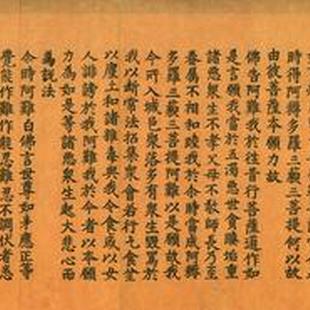 時得阿耨多羅三藐三菩提何以故
由彼菩薩本願力故
佛告阿難我於往昔行菩薩道作如
是言願我當於五濁惡世貪瞋垢重
諸惡衆生不孝父母不敬師長乃至
眷屬不相和睦我於今時當成阿耨
多羅三藐三菩提阿難以是願故我
今所入城邑聚落多有衆生毀罵於
我以斷常法招集衆會若行乞食坌
以塵土和諸雜毒與我令食或以女
人誹謗於我阿難我於今者以本願
力為如是等諸惡衆生起大悲心而
為說法
尒時阿難白佛言世尊如来應正等
覺能作難作能忍難忍不調伏者悉